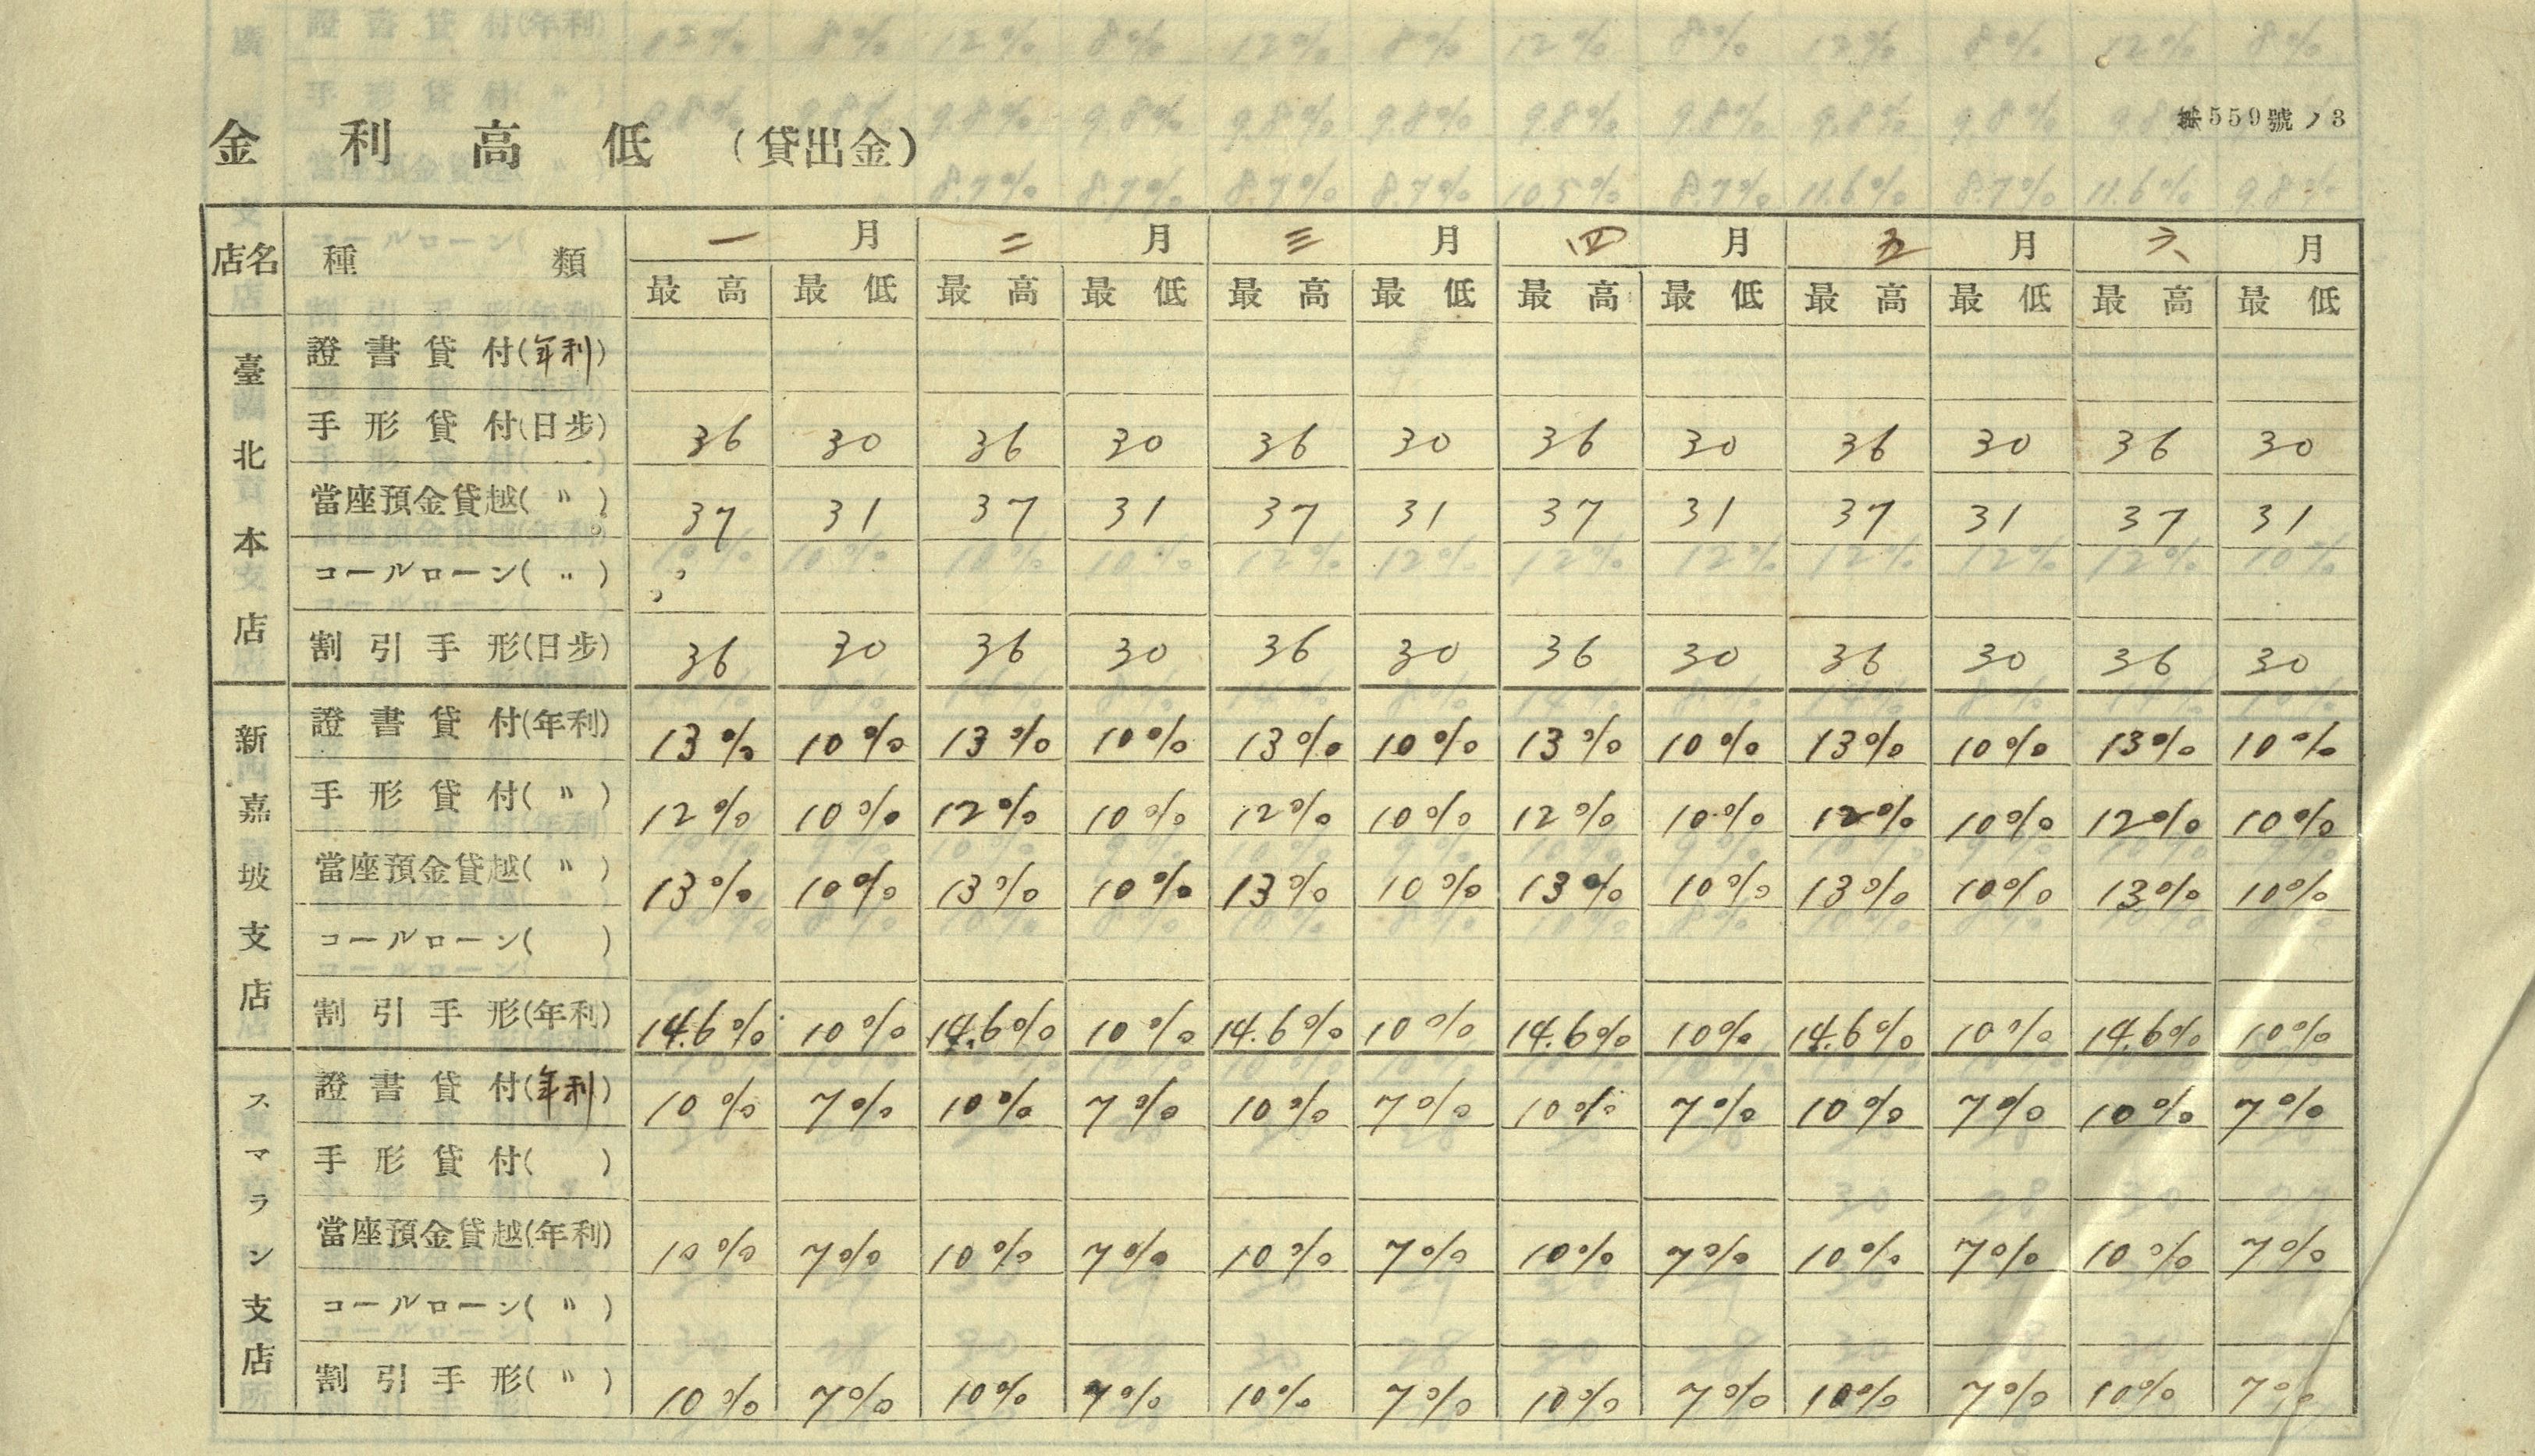 金利高低(貸出金)
559號ノ3
店名 種類 一月 二月 三月 四月 五月 六月
最高 最低 最高 最低 最高 最低 最高 最低 最高 最低 最高 最低
臺北本店
證書貸付(年利)
手形貸付(日步) 36 30 36 30 36 30 36 30 36 30 36 30
當座預金貸越(〃) 37 31 37 31 37 31 37 31 37 31 37 31
コールローン(〃)
割引手形(日步) 36 30 36 30 36 30 36 30 36 30 36 30
新嘉坡支店
證書貸付(年利) 13% 10% 13% 10% 13% 10% 13% 10% 13% 10% 13% 10%
手形貸付(〃) 12% 10% 12% 10% 12% 10% 12% 10% 12% 10% 12% 10%
當座預金貸越(〃) 13% 10% 13% 10% 13% 10% 13% 10% 13% 10% 13% 10%
コールローン( )
割引手形(年利) 14.6% 10% 14.6% 10% 14.6% 10% 14.6% 10% 14.6% 10% 14.6% 10%
スマラン支店
證書貸付(年利) 10% 7% 10% 7% 10% 7% 10% 7% 10% 7% 10% 7%
手形貸付( )
當座預金貸越(年利) 10% 7% 10% 7% 10% 7% 10% 7% 10% 7% 10% 7%
コールローン(〃)
割引手形(〃) 10% 7% 10% 7% 10% 7% 10% 7% 10% 7% 10% 7%